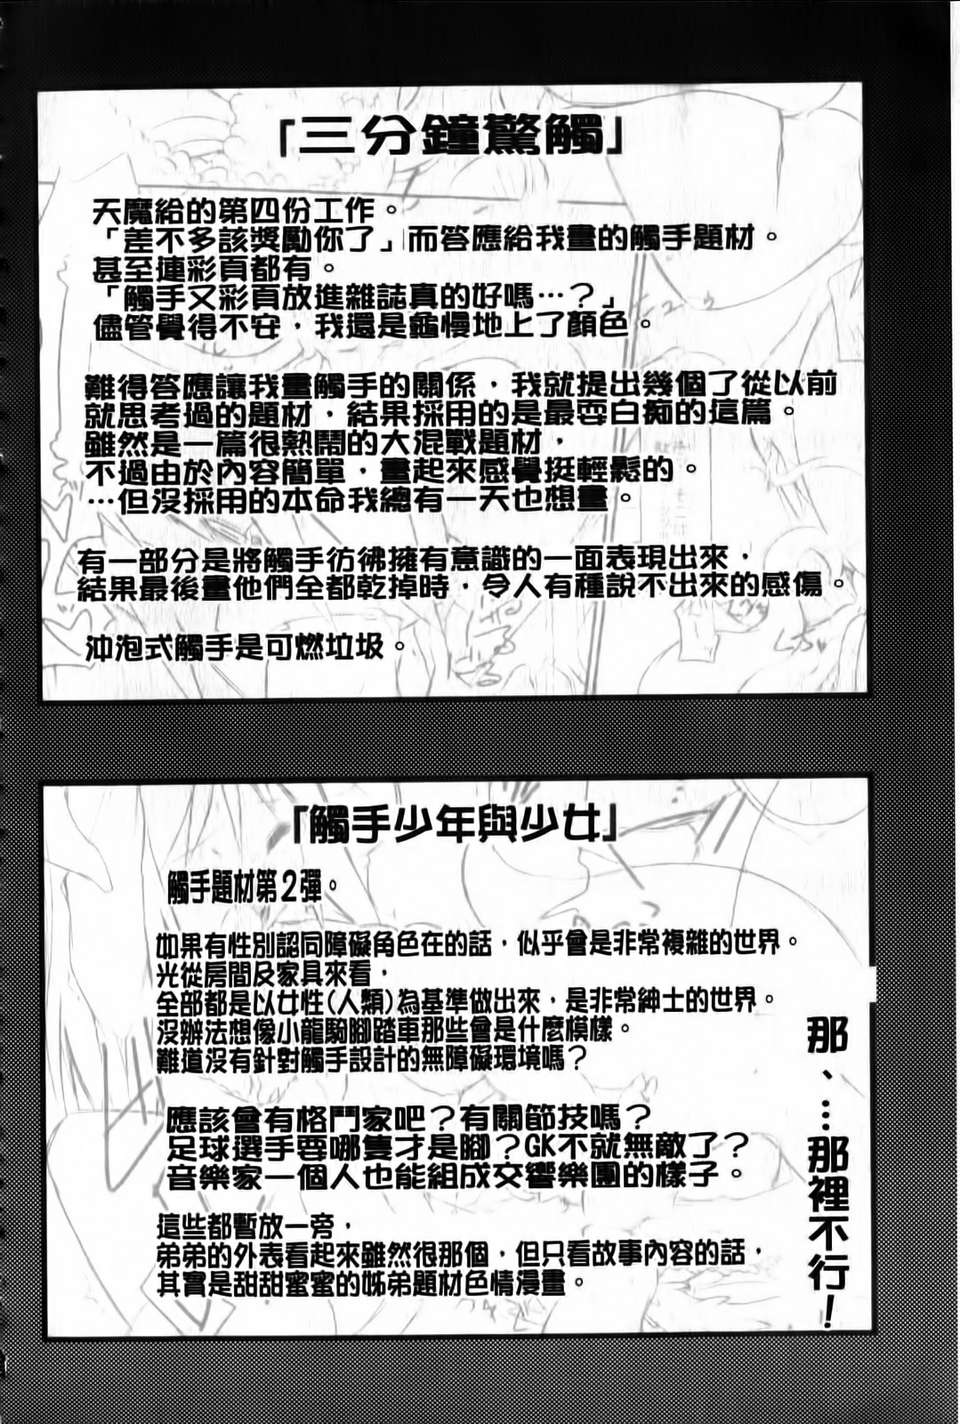 「三分鐘驚觸」
天魔給的第四份工作。
「差不多該獎勵你了」而答應給我畫的觸手題材。
甚至連彩頁都有。
「觸手又彩頁放進雜誌真的好嗎…？」
儘管覺得不安，我還是龜慢地上了顏色。
難得答應讓我畫觸手的關係，我就提出幾個了從以前
就思考過的題材，結果採用的是最耍白痴的這篇。
雖然是一篇很熱鬧的大混戰題材，
不過由於內容簡單，畫起來感覺挺輕鬆的。
…但沒採用的本命我總有一天也想畫。
有一部分是將觸手彷彿擁有意識的一面表現出來，
結果最後畫他們全都乾掉時，令人有種說不出來的感傷。
沖泡式觸手是可燃垃圾。
「觸手少年與少女」
觸手題材第2彈。
如果有性別認同障礙角色在的話，似乎會是非常複雜的世界。
光從房間及家具來看，
全部都是以女性(人類)為基準做出來，是非常紳士的世界。
沒辦法想像小龍騎腳踏車那些會是什麼模樣。
難道沒有針對觸手設計的無障礙環境嗎？
應該會有格鬥家吧？有關節技嗎？
足球選手要哪隻才是腳？GK不就無敵了？
音樂家一個人也能組成交響樂團的樣子。
這些都暫放一旁，
弟弟的外表看起來雖然很那個，但只看故事內容的話，
其實是甜甜蜜蜜的姊弟題材色情漫畫。
那、…那裡不行！